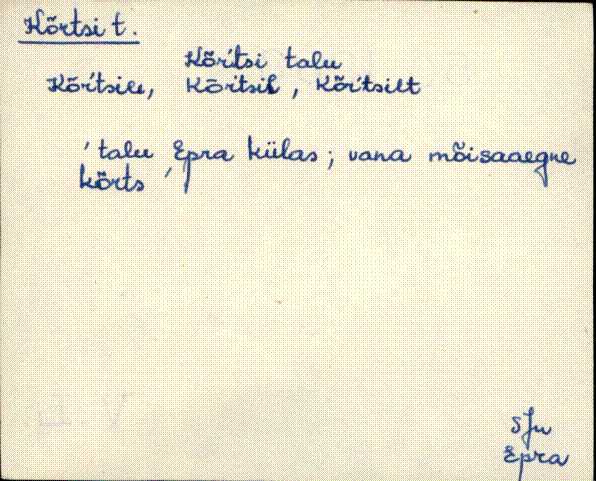 Kõrtsi t.
Kõŕtsi talu
Kõŕtsile, Kõŕtsil, Kõŕtsilt
'talu Epra külas; vana mõisaaegne
kõrts'
SJn
Epra